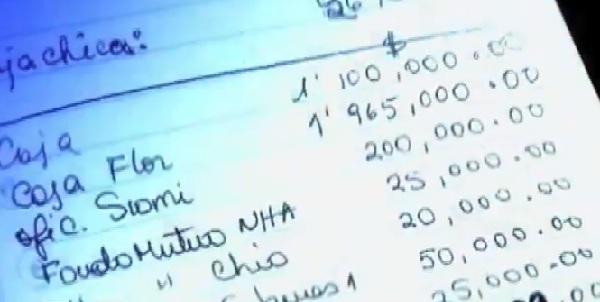 26
jachica:
$
Caja 1'100,000.00
Casa Flor 1'965,000.00
Ofic. Siomi 200,000.00
Fondo Mutuo NHA 25,000.00
" Chio 20,000.00
1 50,000.00
25,000.00